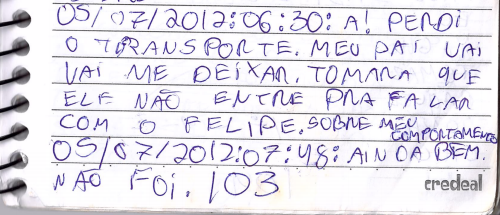 05/07/2012:06:30: A! PERDI
O TRANSPORTE. MEU PAI VAI
VAI ME DEIXAR. TOMARA QUE
ELE NÃO ENTRE PRA FALAR
COM O FELIPE. SOBRE MEU
COMPORTAMENTO
05/07/2012:07:48: AINDA BEM.
NÃO FOI. 103
credeal